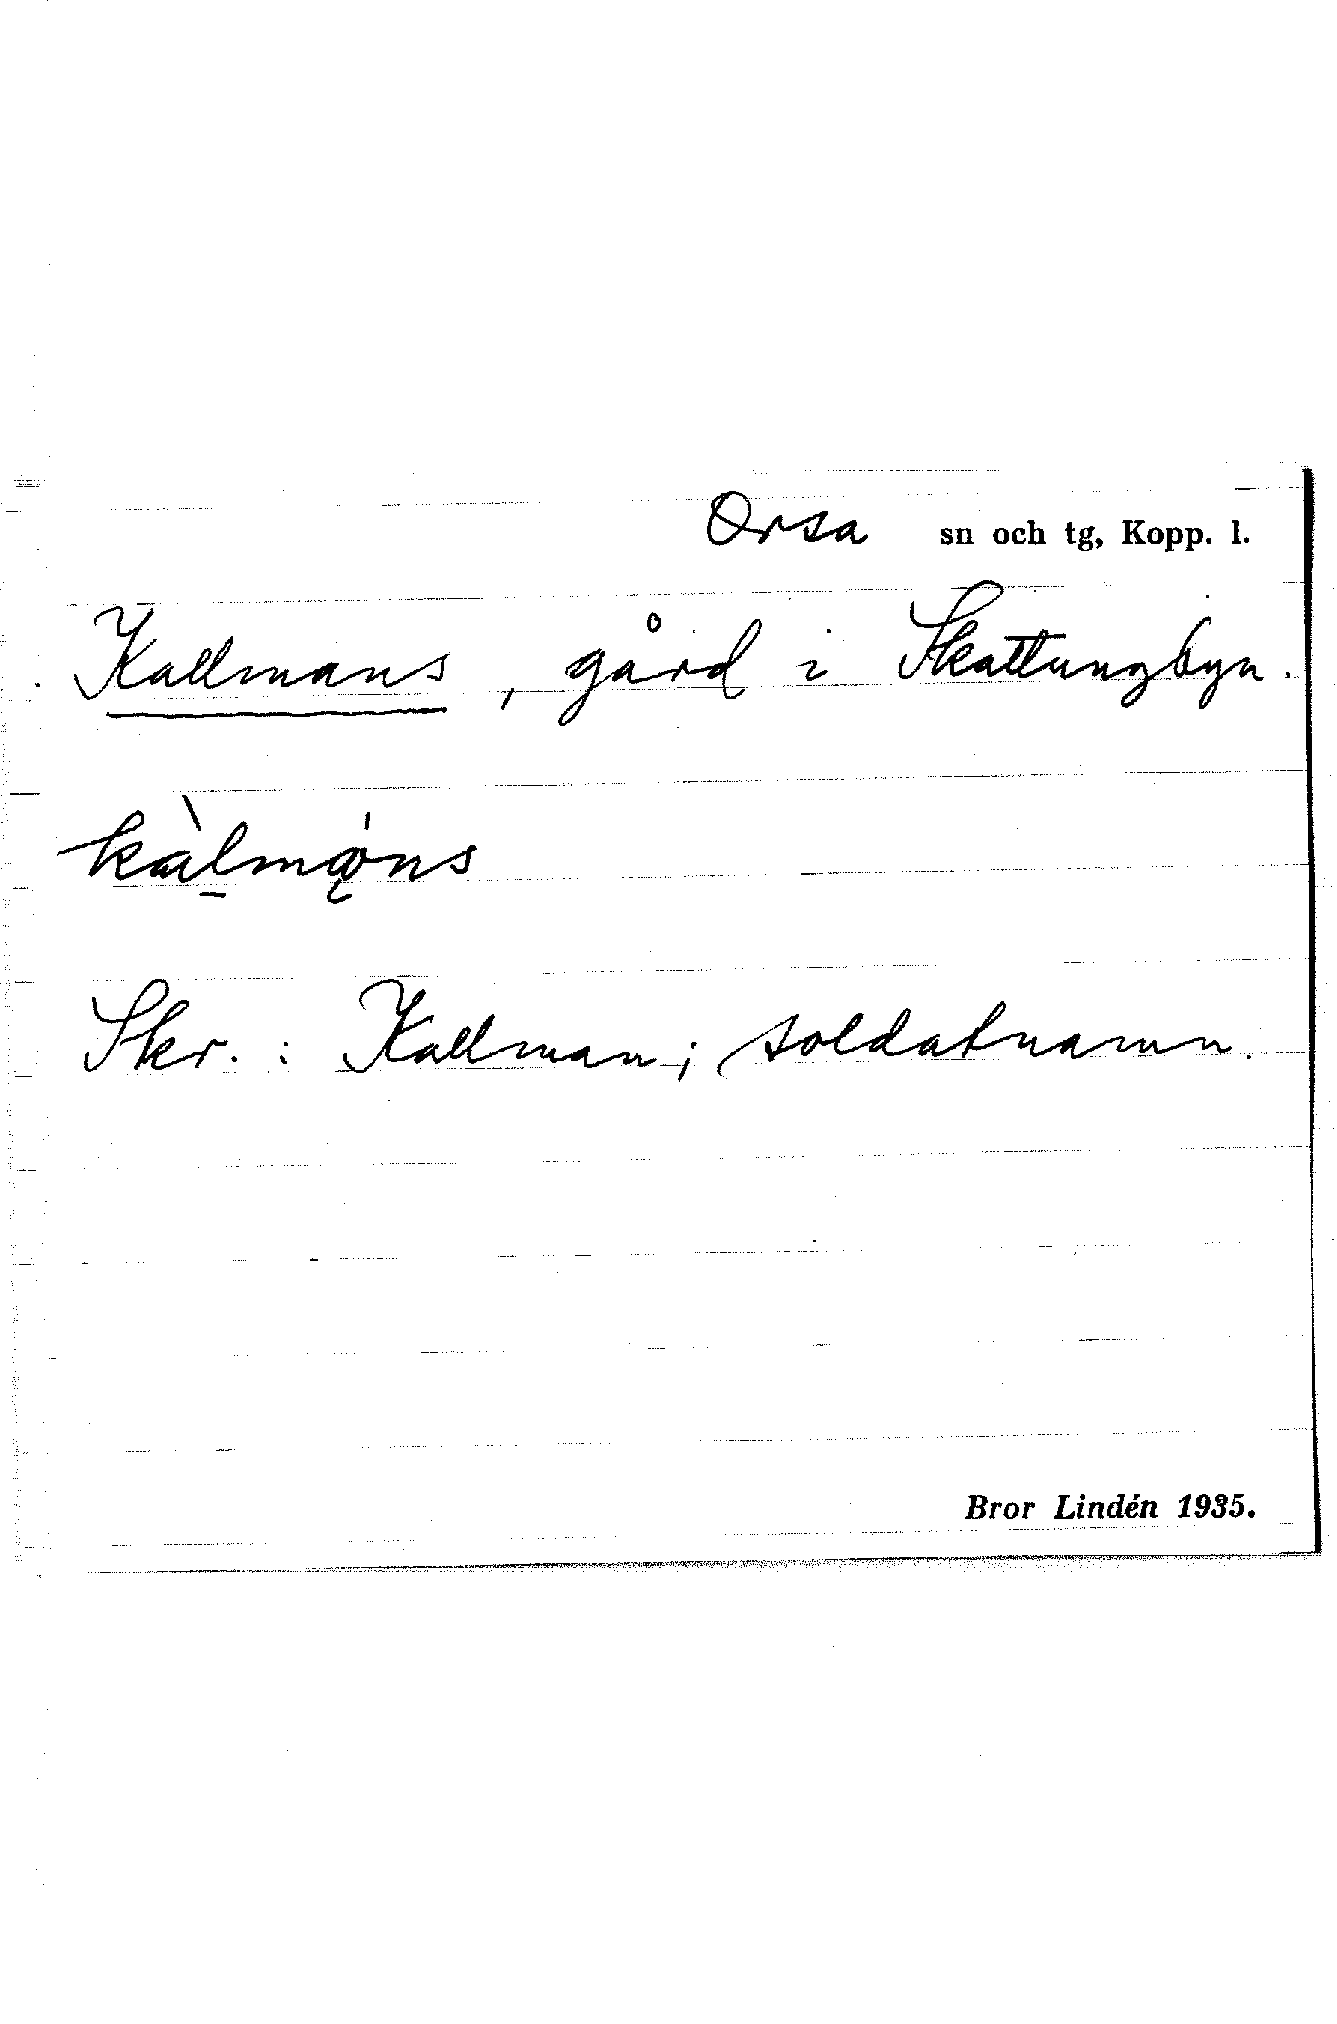 Orsa sn och tg, Kopp. l.
Kallmans, gård i Skattungbyn.
Skr.: Kallman; soldatnamn.
Bror Lindén 1935.